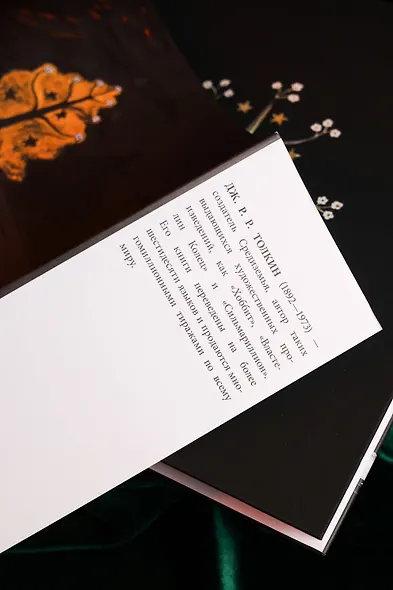 ДЖ. Р. Р. ТОЛКИН (1892—1973) —
создатель Средиземья, автор таких
выдающихся художественных про-
изведений, как «Хоббит», «Власте-
лин Колец» и «Сильмариллион».
Его книги переведены на более
шестидесяти языков и продаются мно-
гомиллионными тиражами по всему
миру.